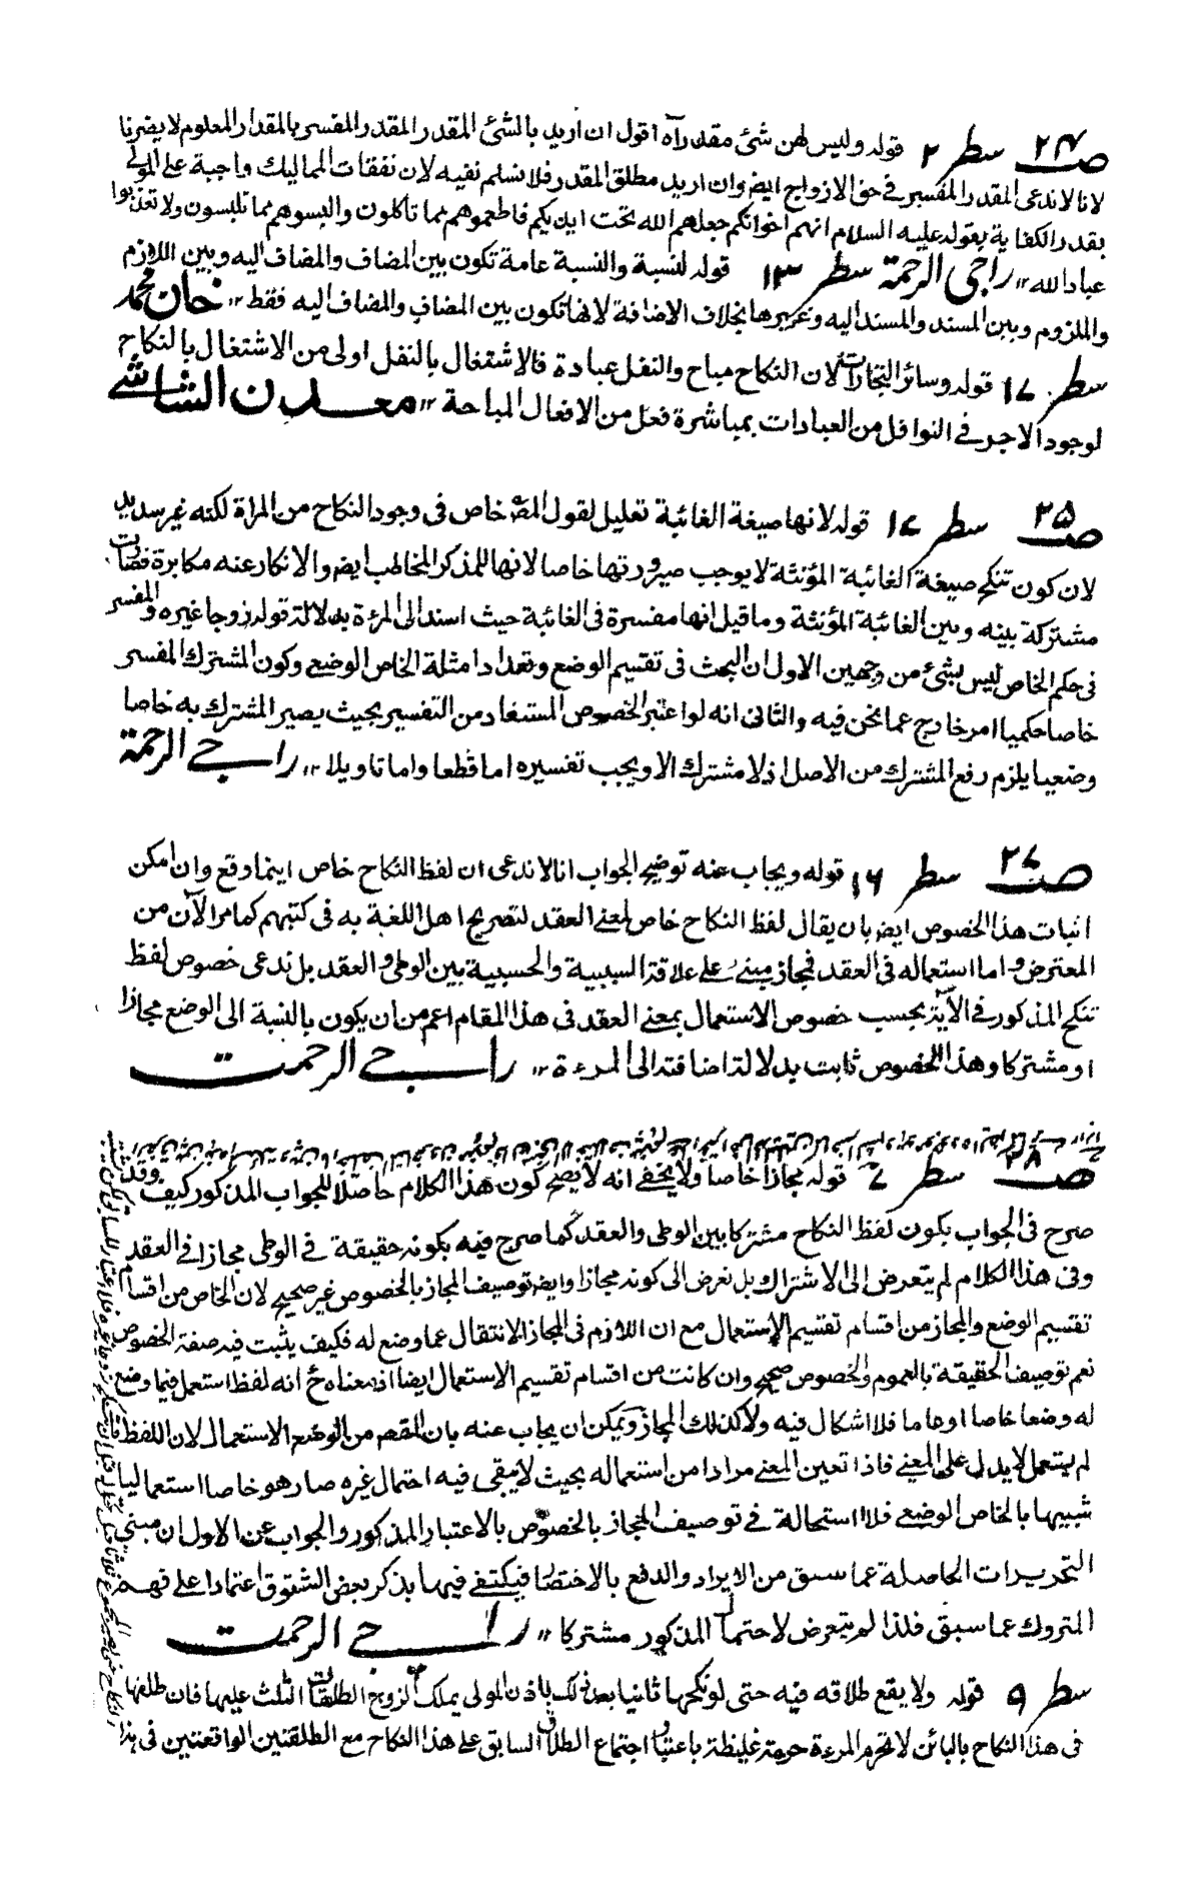 صـ ٢٤ سطر ٢ قوله وليس لهن شئ مقدر آه اقول ان اريد بالشئ المقدر المقدر المفسر بالمقدار المعلوم لا يضرنا
لانا لا ندعى المقدر المفسر في حق الازواج ايضا وان اريد مطلق المقدر فلا نسلم نفيه لان نفقات المماليك واجبة على المولى
بقدر الكفاية بقوله عليه السلام انهم اخوانكم جعلهم الله تحت ايديكم فاطعموهم مما تاكلون والبسوهم مما تلبسون ولا تعذبوا
عباد الله ١٢ راجى الرحمة سطر ١٣ قوله لنسبة والنسبة عامة تكون بين المضاف والمضاف اليه وبين اللازم
والملزوم وبين المسند والمسند اليه وغيرها بخلاف الاضافة لانها تكون بين المضاف والمضاف اليه فقط ١٢ خان محمد
سطر ١٧ قوله وسائر التجارات لان النكاح مباح والنفل عبادة فالاشتغال بالنفل اولى من الاشتغال بالنكاح
لوجود الاجر في النوافل من العبادات بمباشرة فعل من الافعال المباحة ١٢ معدن الشاشے
صـ ٢٥ سطر ١٧ قوله لانها صيغة الغائبة تعليل لقول المص خاص فى وجود النكاح من المراة لكنه غير سديد
لان كون تنكح صيغة الغائبة المؤنثة لا يوجب صيرورتها خاصا لانها للمذكر المخاطب ايض والانكار عنه مكابرة فصارت
مشتركة بينه وبين الغائبة المؤنثة وما قيل انها مفسرة فى الغائبة حيث اسند الى المرءة بدلالة قوله زوجا غيره والمفسر
فى حكم الخاص ليس بشئ من وجهين الاول ان البحث فى تقسيم الوضع وتعداد امثلة الخاص الوضعے وكون المشترك المفسر
خاصا حكميا امر خارج عما نحن فيه والثانى انه لو اعتبر الخصوص المستفاد من التفسير بحيث يصير المشترك به خاصا
وضعيا يلزم رفع المشترك من الاصل اذ لا مشترك الا ويجب تفسيره اما قطعا واما تاويلا ١٢ راجے الرحمة
صـ ٢٧ سطر ١٦ قوله ويجاب عنه توضيح الجواب انا لا ندعى ان لفظ النكاح خاص اينما وقع وان امكن
اثبات هذا الخصوص ايض بان يقال لفظ النكاح خاص لمعنے العقد لتصريح اهل اللغة به فى كتبهم كما مر الآن من
المعترض واما استعماله فى العقد فمجاز مبنے على علاقة السببية والمسببية بين الوطى والعقد بل ندعى خصوص لفظ
تنكح المذكور فى الآية بحسب خصوص الاستعمال بمعنے العقد فى هذا المقام اعم من ان يكون بالنسبة الى الوضع مجازا
او مشتركا وهذا الخصوص ثابت بدلالة اضافته الى المرءة ١٢ راجے الرحمت
صـ ٢٨ سطر ٧ قوله مجازا خاصا ولا يخفے انه لا يصح كون هذا الكلام حاصلا للجواب المذكور كيف وقد
صرح فى الجواب بكون لفظ النكاح مشتركا بين الوطى والعقد كما صرح فيه بكونه حقيقة فى الوطى مجازا فى العقد
وفى هذا الكلام لم يتعرض الى الاشتراك بل تعرض الى كونه مجازا وايض توصيف المجاز بالخصوص غير صحيح لان الخاص من اقسام
تقسيم الوضع والمجاز من اقسام تقسيم الاستعمال مع ان اللازم فى المجاز الانتقال عما وضع له فكيف يثبت فيه صفة الخصوص
نعم توصيف الحقيقة بالعموم والخصوص صحيح وان كانت من اقسام تقسيم الاستعمال ايضا اذ معناه ح انه لفظ استعمل فيما وضع
له وضعا خاصا او عاما فلا اشكال فيه ولا كذلك المجاز ويمكن ان يجاب عنه بان المقصود من الوضع الاستعمال لان اللفظ
لم يستعمل لا يدل على المعنے فاذا تعين المعنے مرادا من استعماله بحيث لا يبقى فيه احتمال غيره صار هو خاصا استعماليا
شبيها بالخاص الوضعے فلا استحالة فى توصيف المجاز بالخصوص بالاعتبار المذكور والجواب عن الاول ان مبنى
التحريرات الحاصلة عما سبق من الايراد والدفع بالاختصار فيكتفے فيها بذكر بعض الشقوق اعتمادا على فهم
المتروك عما سبق فلذا لم يتعرض لاحتمال المذكور مشتركا ١٢ راجے الرحمت
سطر ٩ قوله ولا يقع طلاقه فيه حتى لو نكحها ثانيا بعد ذلك باذن المولى يملك الزوج الطلقات الثلث عليها فان طلقها
فى هذا النكاح بالبائن لا تحرم المرءة حرمة غليظة باعتبار اجتماع الطلاق السابق على هذا النكاح مع الطلقتين الواقعتين فى هذا